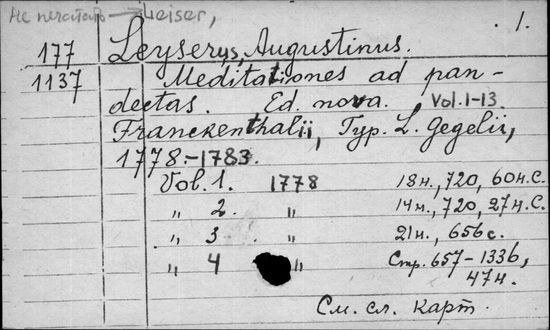 Не печатать → Leiser,
1.
177 Leyserus, Augustinus.
1137 Meditationes ad pan-
dectas. Ed. nova. Vol. 1-13.
Franckenthalii, Typ. L. Gegelii,
1778.-1783.
Vol. 1. 1778 13н., 720, 60н.с.
„ 2. „ 14н., 720, 27н.с.
„ 3 „ 21н., 656с.
„ 4 „ Стр. 657-1336,
47н.
См. сл. карт.